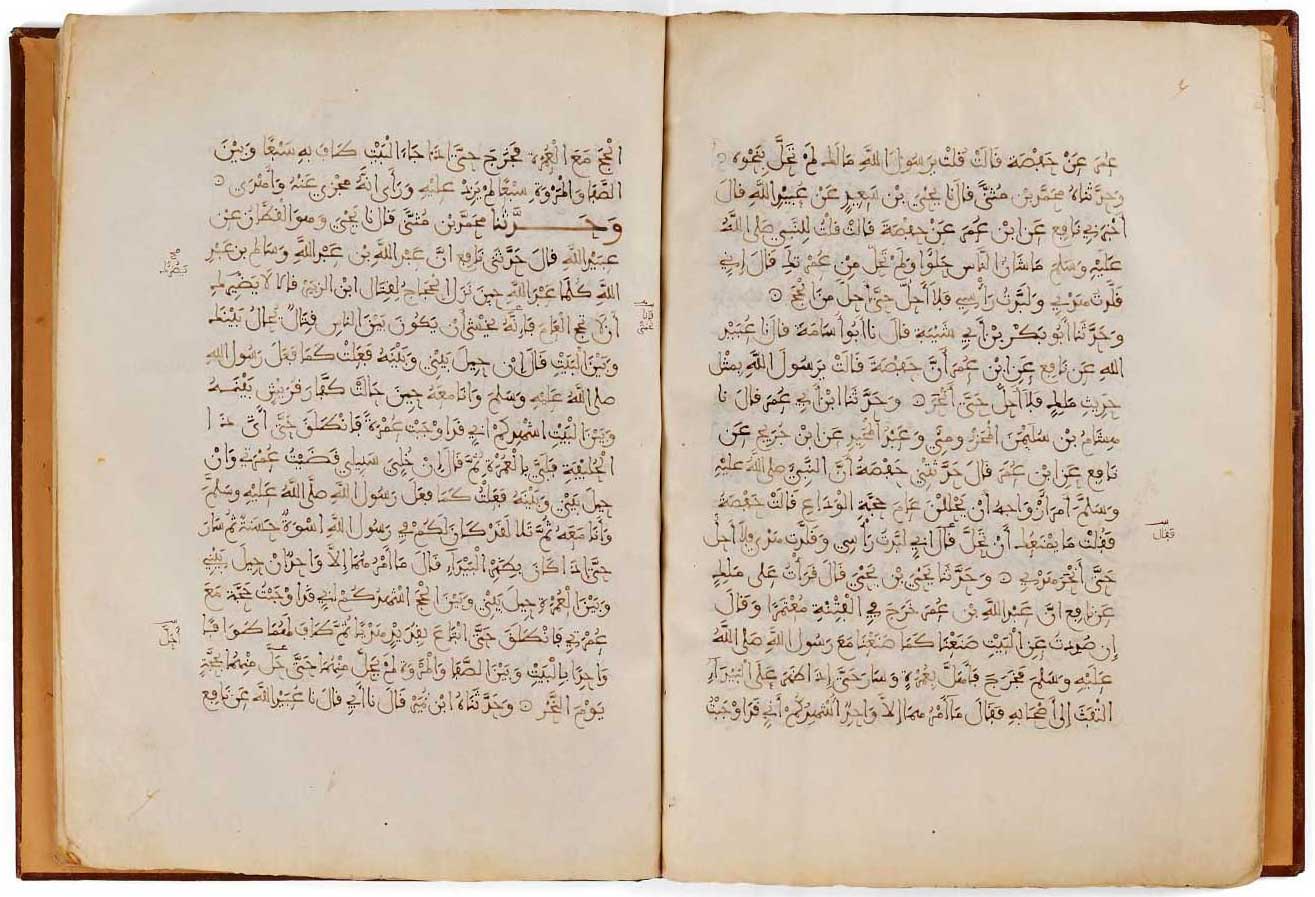 عمر عن حفصة قالت قلت يرسول الله مالك لم تحل بنحوه
وحدثناه محمد بن مثنى قال نا يحيى بن سعيد عن عبيد الله قال
أخبرني نافع عن ابن عمر عن حفصة قالت قلت للنبي صلى الله
عليه وسلم ما شان الناس حلوا ولم تحل من عمرتك قال إني
قلدت هديي ولبدت رأسي فلا أحل حتى أحل من الحج
وحدثنا أبو بكر بن أبي شيبة قال نا أبو اسامة قال نا عبيد
الله عن نافع عن ابن عمر أن حفصة قالت يرسول الله بمثل
حديث مالك فلا أحل حتى أنحر وحدثنا ابن أبي عمر قال نا
هشام بن سليمن المخزومي وعبد المجيد عن ابن جريج عن
نافع عن ابن عمر قال حدثتني حفصة أن النبي صلى الله عليه
وسلم أمر أزواجه أن يحللن عام حجة الوداع قالت حفصة
فقلت ما يمنعك أن تحل قال إني لبدت رأسي وقلدت هديي فلا أحل
حتى أنحر هديي وحدثنا يحيى بن يحيى قال قرأت على مالك
عن نافع ان عبد الله بن عمر خرج في الفتنة معتمرا وقال
إن صددت عن البيت صنعنا كما صنعنا مع رسول الله صلى الله
عليه وسلم فخرج فأهل بعمرة وسار حتى إذا ظهر على البيداء
التفت إلى أصحابه فقال ما أمرهما إلا واحد أشهدكم أني قد أوجبت
فقال
الحج مع العمرة فخرج حتى اذا جاء البيت طاف به سبعا وبين
الصفا والمروة سبعا لم يزد عليه ورأى انه مجزئ عنه وأهدى
وحدثنا محمد بن مثنى قال نا يحيى وهو القطان عن
عبيد الله قال حدثني نافع ان عبد الله بن عبد الله وسالم بن عبد
الله كلما عبد الله حين نزل الحجاج لقتال ابن الزبير قالا لا يضرك
أن لا تحج العام فإنا نخشى أن يكون بين الناس قتال يحال بينك
وبين البيت قال إن حيل بيني وبينه فعلت كما فعل رسول الله
صلى الله عليه وسلم وانا معه حين حالت كفار قريش بينه
وبين البيت اشهدكم اني قد اوجبت عمرة فانطلق حتى أتى ذا
الحليفة فلبى بالعمرة ثم قال إن خلي سبيلي قضيت عمرتي وإن
حيل بيني وبينه فعلت كما فعل رسول الله صلى الله عليه وسلم
وأنا معه ثم تلا لقد كان لكم في رسول الله اسوة حسنة ثم سار
حتى اذا كان بظهر البيداء قال ما أمرهما إلا واحد إن حيل بيني
وبين العمرة حيل بيني وبين الحج اشهدكم اني قد اوجبت حجة مع
عمرتي فانطلق حتى ابتاع بقديد هديا ثم طاف لهما طوافا
واحدا بالبيت وبين الصفا والمروة ثم لم يحل منهما حتى حل منهما بحجة
يوم النحر وحدثناه ابن نمير قال نا أبي قال نا عبيد الله عن نافع